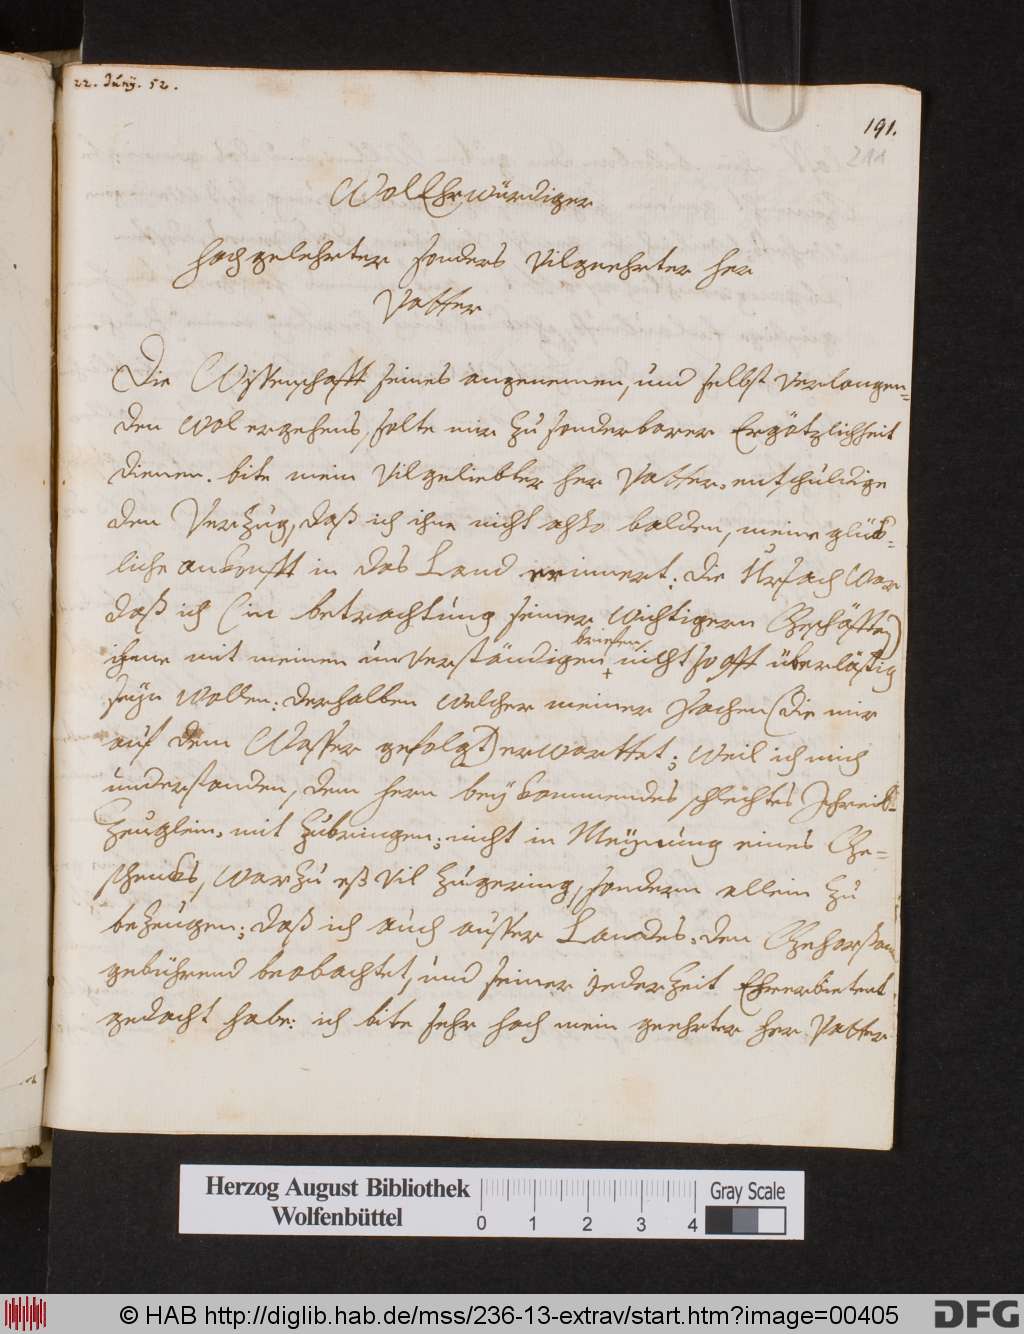 22. Junÿ. 52.
191.
211
WolEhrwürdiger
Hochgelehrter sonders vilgeehrter Her
Vatter
Die Wissenschafft seines angenemen, und selbst verlangen=
den wolergehens, solte mir zu sonderbarer Ergötzlichkeit
dienen. bite mein vilgeliebter Her Vatter, entschuldige
den Verzug, daß ich ihne nicht also balden, meine glück=
liche ankonfft in das Land erinnert. die Ursach war
daß ich (in betrachtung seiner wichtigern Geschäfften)
briefen
ihne mit meinen unverständigen + nicht so offt überlästig
seÿn wollen: derhalben welcher meiner sachen (die mir
auf dem Wasser gefolgt) erwarttet; weil ich mich
understanden, dem Hern beÿkommendes schlechtes Schreib=
Zeuglein, mit zubringen; nicht in Meÿnung eines Ge=
schencks, warzu eß vil zugering, sondern allein zu
bezeugen; daß ich auch ausser Landes, den Gehorsam
gebührend beobachtet, und seiner jederzeit Ehrerbietent
gedacht habe: ich bite sehr hoch mein geehrter Her Vatter
Herzog August Bibliothek
Wolfenbüttel
0 1 2 3 4
Gray Scale
© HAB http://diglib.hab.de/mss/236-13-extrav/start.htm?image=00405
DFG